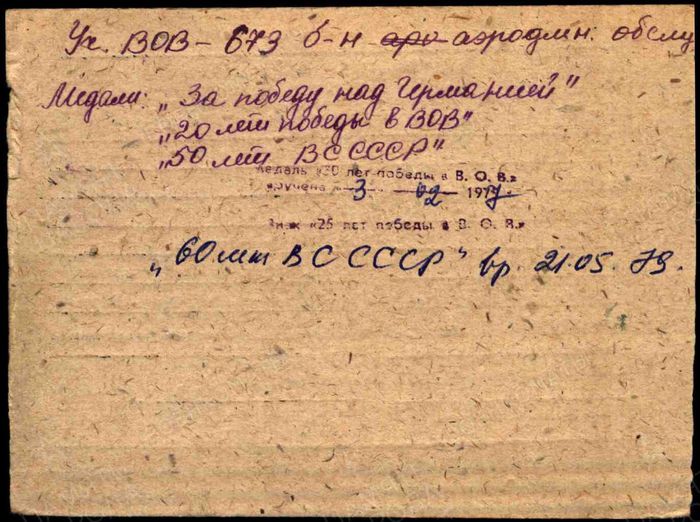 Уч. ВОВ - 673 б-н аэродлин. обслу
Медали: „За победу над Германией"
„20 лет победы в ВОВ"
„50 лет ВС СССР"
медаль «30 лет победы в В. О. В.»
вручена «3» 02 1977.
Знак «25 лет победы в В. О. В.»
„60 лет ВС СССР" вр. 21.05.79.